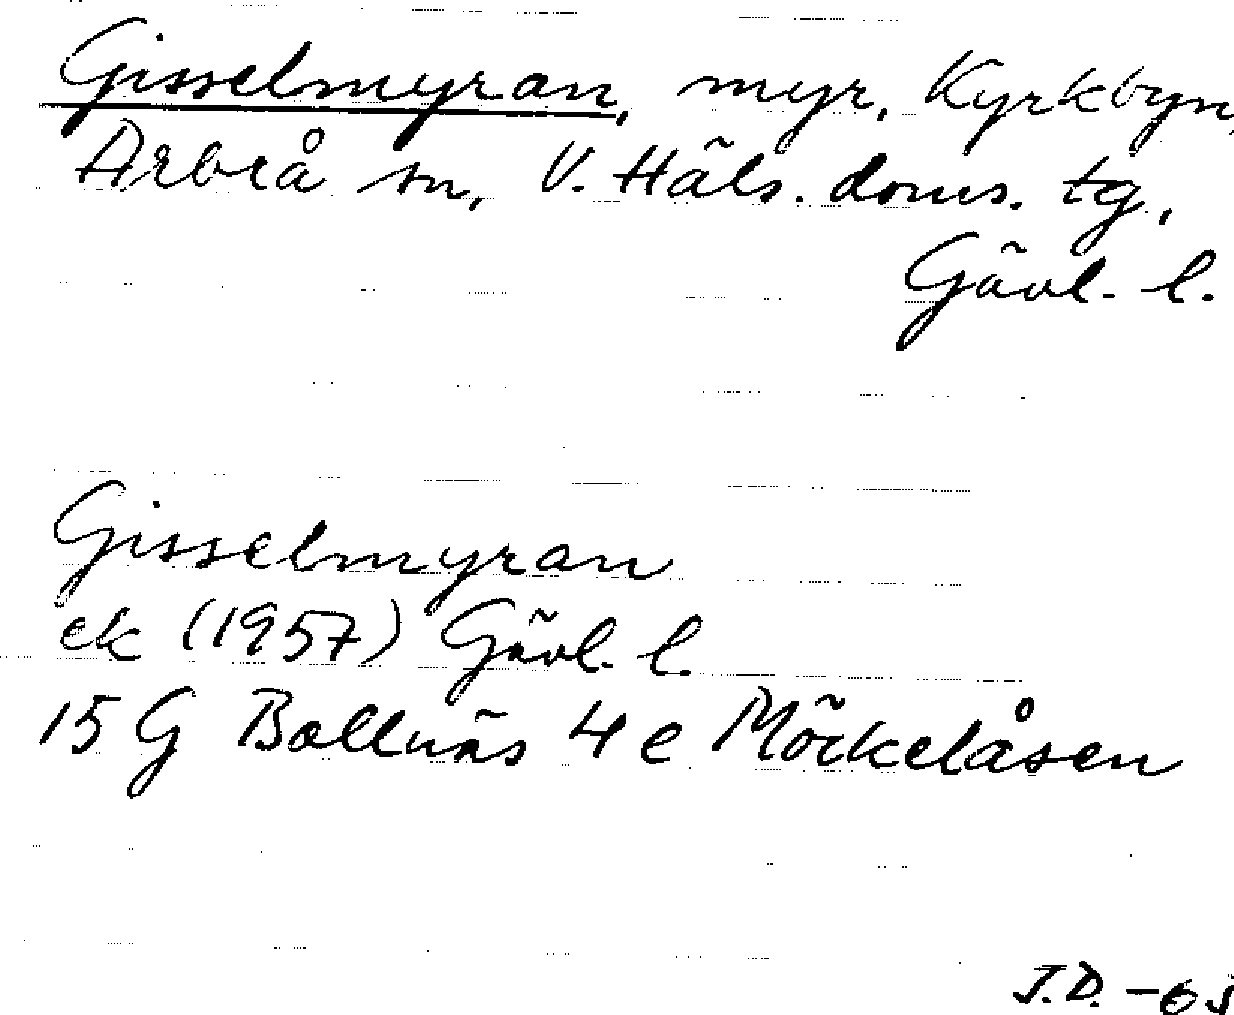 Gisselmyran, myr, Kyrkbyn,
Arbrå sn, V. Häls. doms. tg,
Gävl. l.
Gisselmyran
ek (1957) Gävl. l.
15 G Bollnäs 4 e Mörkelåsen
J.D. -65